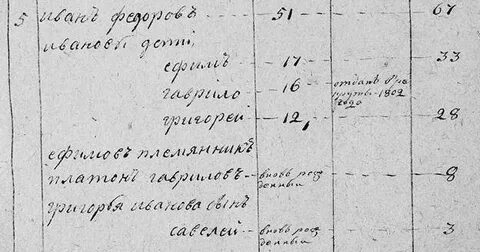 5 иванъ федоровъ 51 67
ивановы дети
ефимъ 17 33
гаврило 16 отданъ в ре
круты 1802
года
григорей 12 28
ефимовъ племянникъ
платонъ гавриловъ вновь рож
денный 8
григорья иванова сынъ
савелей вновь рож
денный 3